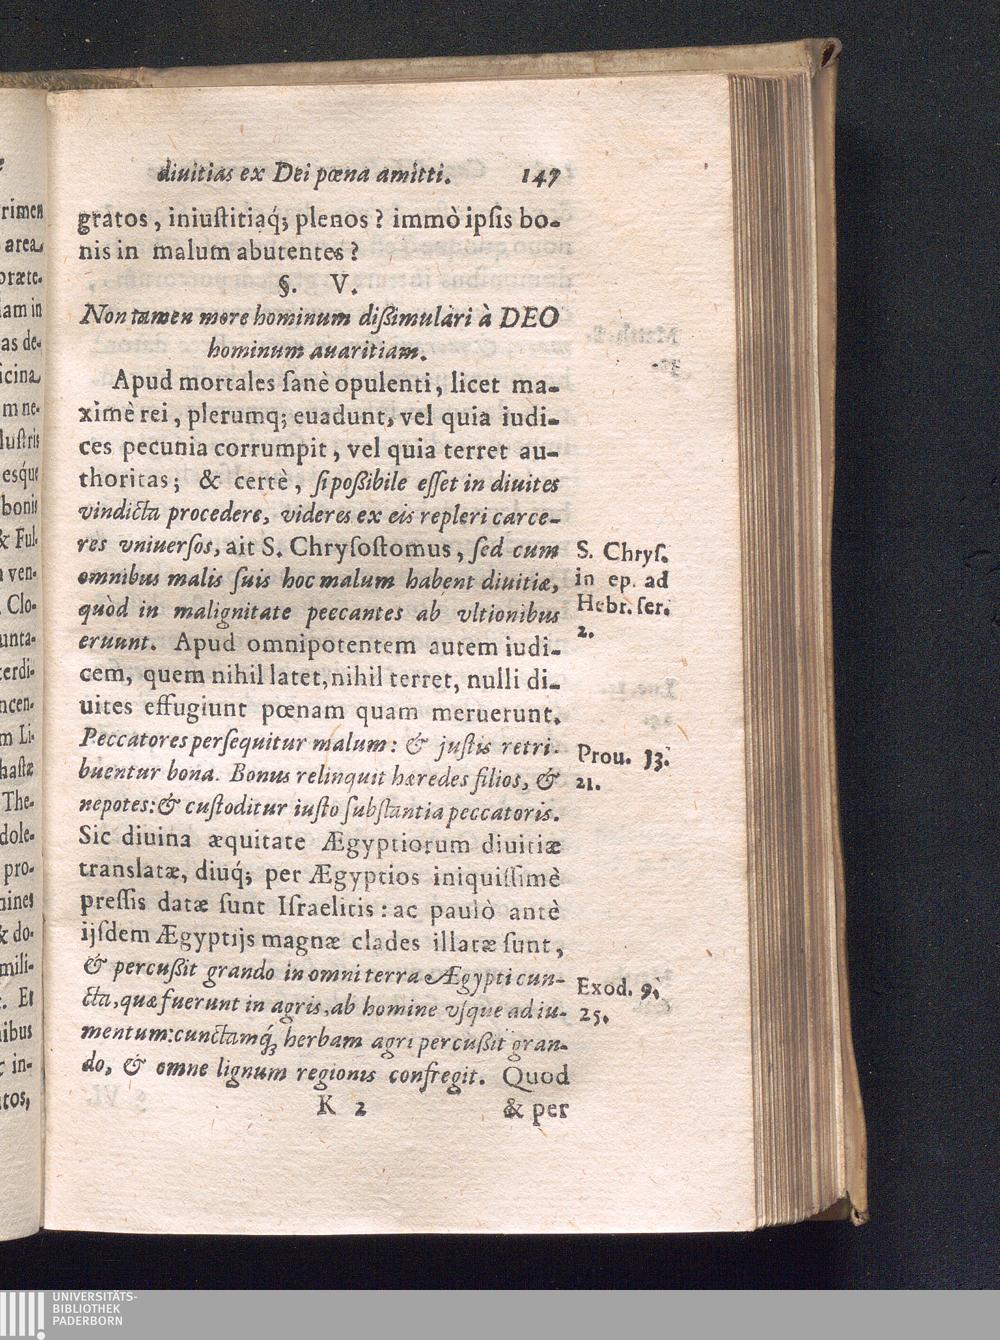 diuitias ex Dei pœna amitti. 147
gratos, iniuſtitiaq́; plenos? immò ipſis bo-
nis in malum abutentes?
§. V.
Non tamen more hominum diſſimulari à DEO
hominum auaritiam.
Apud mortales ſanè opulenti, licet ma-
ximè rei, plerumq; euadunt, vel quia iudi-
ces pecunia corrumpit, vel quia terret au-
thoritas; & certè, ſi poſſibile eſſet in diuites
vindicta procedere, videres ex eis repleri carce-
res vniuerſos, ait S. Chryſoſtomus, ſed cum
omnibus malis ſuis hoc malum habent diuitiæ,
quòd in malignitate peccantes ab vltionibus
eruunt. Apud omnipotentem autem iudi-
cem, quem nihil latet, nihil terret, nulli di-
uites effugiunt pœnam quam meruerunt.
Peccatores perſequitur malum: & juſtis retri-
buentur bona. Bonus relinquit hæredes filios, &
nepotes: & cuſtoditur iuſto ſubſtantia peccatoris.
Sic diuina æquitate Ægyptiorum diuitiæ
translatæ, diuq́; per Ægyptios iniquiſſimè
preſſis datæ ſunt Iſraelitis: ac paulò antè
ijſdem Ægyptijs magnæ clades illatæ ſunt,
& percuſſit grando in omni terra Ægypti cun-
cta, quæ fuerunt in agris, ab homine vſque ad iu-
mentum: cunctamq́; herbam agri percuſſit gran-
do, & omne lignum regionis confregit. Quod
K 2 & per
S. Chryſ.
in ep. ad
Hebr. ſer.
2.
Prou. 13.
21.
Exod. 9.
25.
rimen
area
præte-
iam in
as de-
icina
m ne-
luſtris
esq́ue
bonis
& Ful-
ven-
Clo-
unta-
terdi-
ncen-
m Li-
haſtæ
The-
dole-
pro-
mines
& do-
mili-
Et
nibus
in-
tos,
UNIVERSITÄTS-
BIBLIOTHEK
PADERBORN